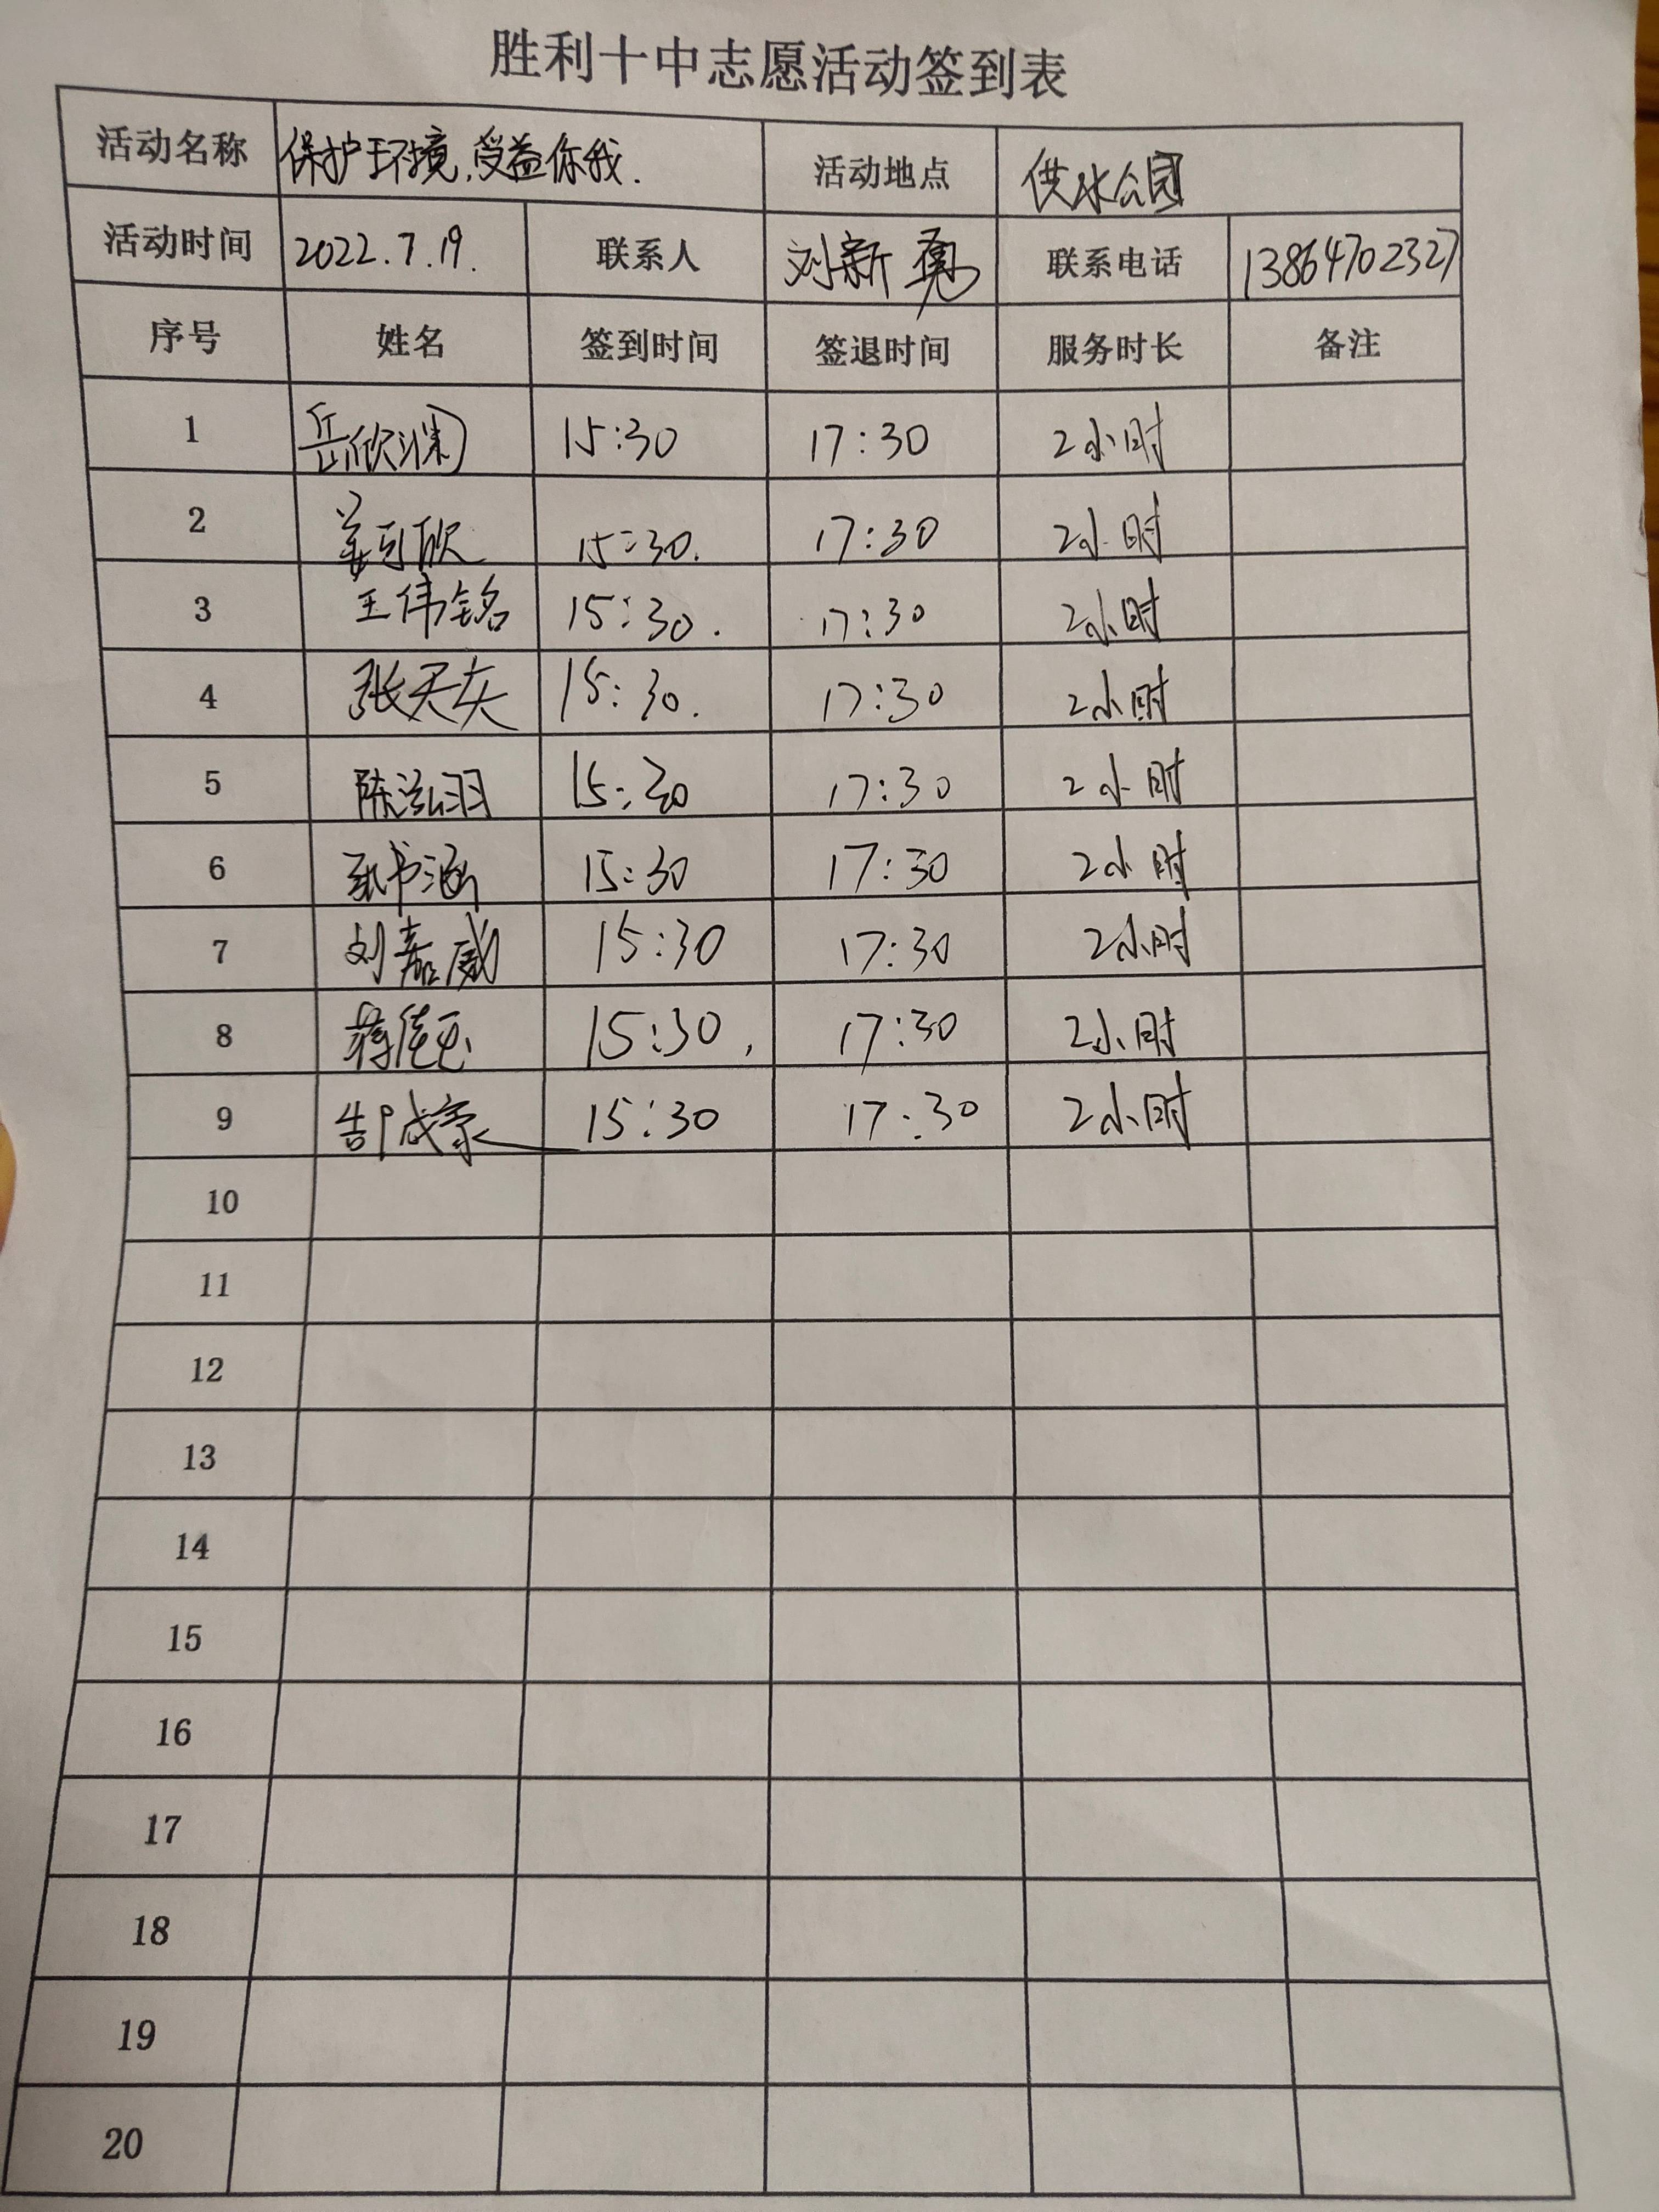 胜利十中志愿活动签到表
活动名称 保护环境,受益你我. 活动地点 供水公园
活动时间 2022.7.19. 联系人 刘新 联系电话 13864702327
序号 姓名 签到时间 签退时间 服务时长 备注
1 岳欣渊 15:30 17:30 2小时
2 姜可欣 15:30. 17:30 2小时
3 王伟铭 15:30. 17:30 2小时
4 张天 15:30. 17:30 2小时
5 陈泓羽 15:30 17:30 2小时
6 书涵 15:30 17:30 2小时
7 刘嘉威 15:30 17:30 2小时
8 蒋佳 15:30, 17:30 2小时
9 郜成 15:30 17:30 2小时
10
11
12
13
14
15
16
17
18
19
20